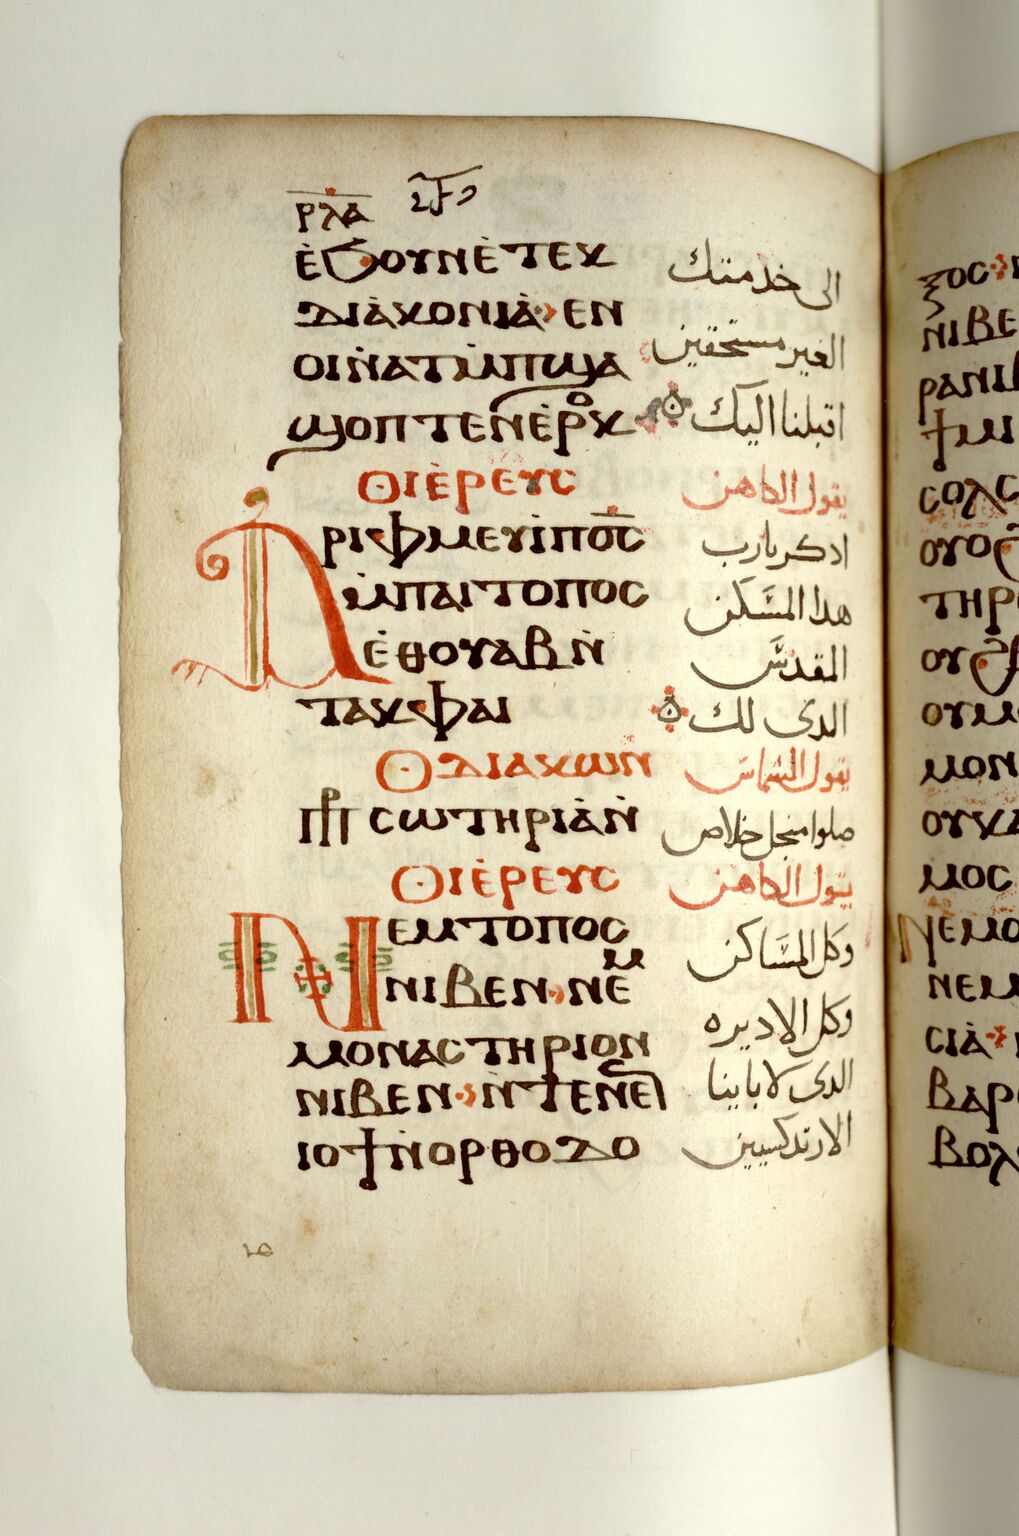 ⲣⲗⲁ
ⲉ̀ϧⲟⲩⲛⲉ̀ⲧⲉⲕ
ⲇⲓⲁ̀ⲕⲟⲛⲓⲁ̀ ⲉⲛ
ⲟⲓⲛ̀ⲁⲧⲙ̀ⲡϣⲁ
ϣⲟⲡⲧⲉⲛⲉ̀ⲣⲟⲕ
ⲟⲓⲉ̀ⲣⲉⲩⲥ
ⲁⲣⲓⲫⲙⲉⲩⲓ̀ⲡⲟ̅ⲥ̅
ⲙ̀ⲡⲁⲓⲧⲟⲡⲟⲥ
ⲉ̀ⲑⲟⲩⲁⲃⲛ̀
ⲧⲁⲕⲫⲁⲓ
ⲟⲇⲓⲁⲕⲱⲛ
ⲥⲱⲧⲏⲣⲓⲁ̀ⲛ̀
ⲟⲓⲉ̀ⲣⲉⲩⲥ
ⲛⲉⲙⲧⲟⲡⲟⲥ
ⲛⲓⲃⲉⲛ ⲛⲉⲙ
ⲙⲟⲛⲁⲥⲧⲏⲣⲓⲟⲛ
ⲛⲓⲃⲉⲛ ⲛ̀ⲧⲉⲛⲉ
ⲓⲟϯⲛ̀ⲟⲣⲑⲟⲇⲟ
الى خدمتك
الغير مستحقين
اقبلنا اليك
يقول الكاهن
ادكر يارب
هدا المسَكن
المقدسَ
الدى لك
يقول الشماس
صلوا منجل خلاص
يقول الكاهن
وكل المسَاكن
وكل الاديره
الدى لابا ينا
الارتدكسيين
ⲝⲟⲥ
ⲛⲓⲃⲉ
ⲣⲁⲛⲓ
ⲥⲟⲗⲥ
ⲟⲩⲟϩ
ⲧⲏⲣ
ⲟⲩ
ⲟⲩⲙ
ⲙⲟⲛ
ⲟⲩⲕⲁ
ⲙⲟⲥ
ⲛⲉⲙⲟ
ⲛⲉⲙ
ⲥⲓⲁ̀
ⲃⲁⲣ
ⲃⲟⲗ